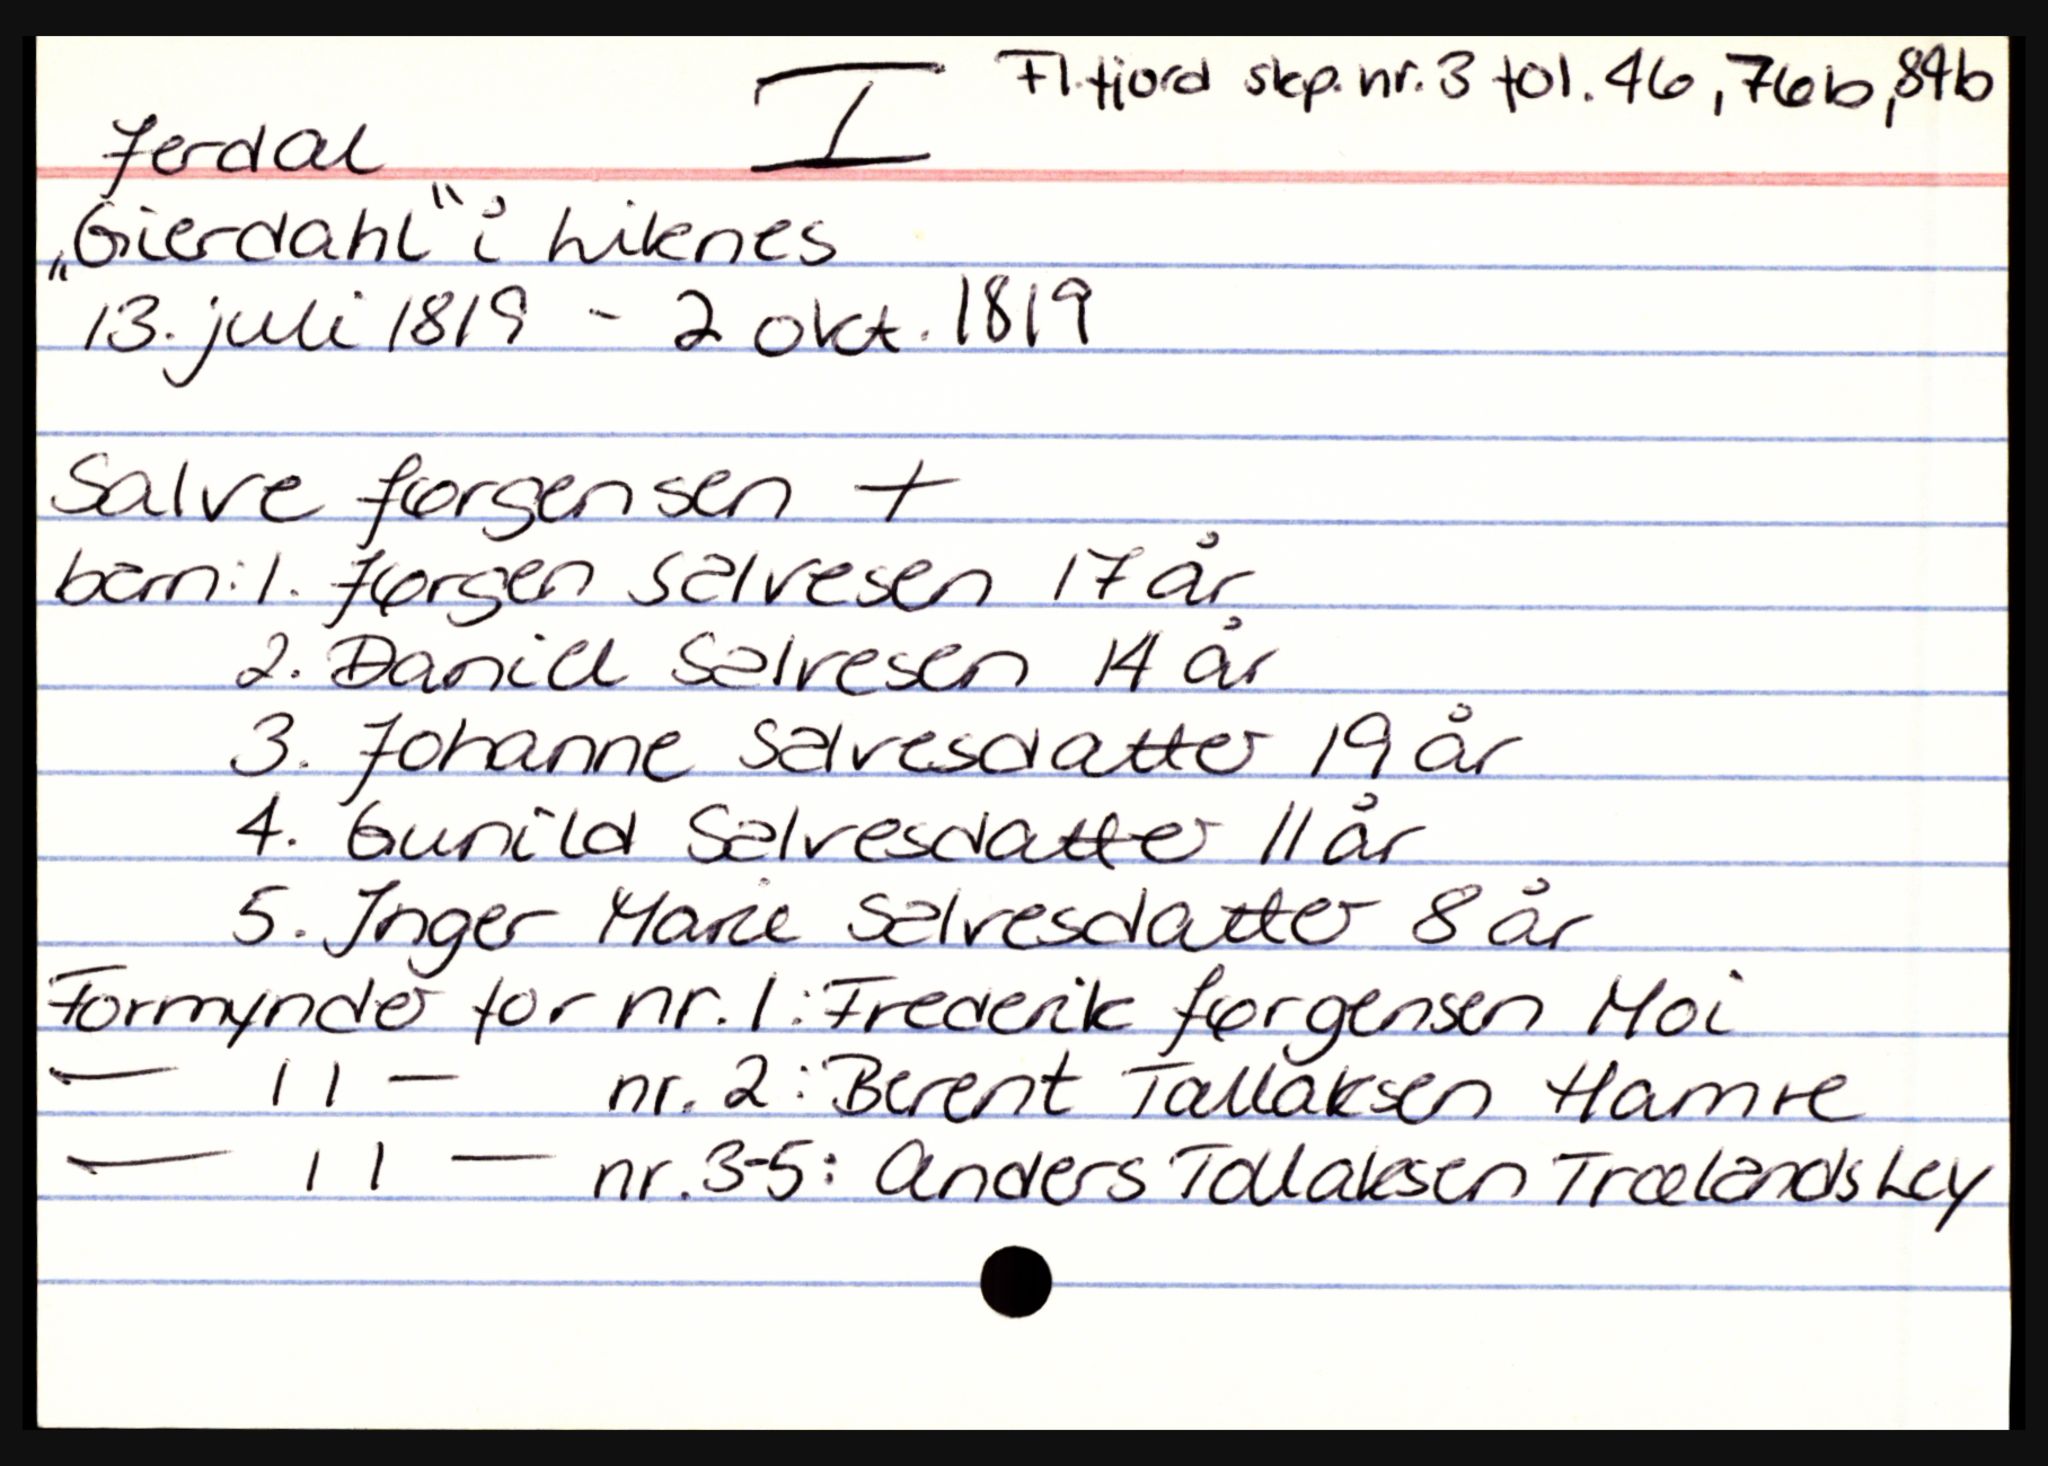 I Fl.fjord skp.nr.3 fol.46,76b,84b
Jerdal
„Gierdahl“ i Liknes
13. juli 1819 - 2 okt. 1819
Salve Jørgensen +
barn: 1. Jørgen Salvesen 17 år
2. Daniel Salvesen 14 år
3. Johanne Salvesdatter 19 år
4. Gunild Salvesdatter 11 år
5. Inger Marie Salvesdatter 8 år
Formynder for nr. 1: Frederik Jørgensen Moi
— 11 — nr. 2: Berent Tallaksen Hamre
— 11 — nr. 3-5: Anders Tallaksen Trælandshey